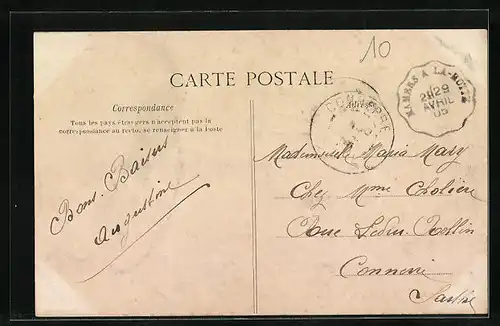 10
CARTE POSTALE
Correspondance
Tous les pays étrangers n'acceptent pas la
correspondance au recto, se renseigner à la Poste
Bons Baisers
Augustine
CONNERRE
MAMERS A LA-HUTTE
29
AVRIL
05
Mademoiselle Maria Mary
Chez Mme Cholière
Rue Ledru-Rollin
Connerré
Sarthe